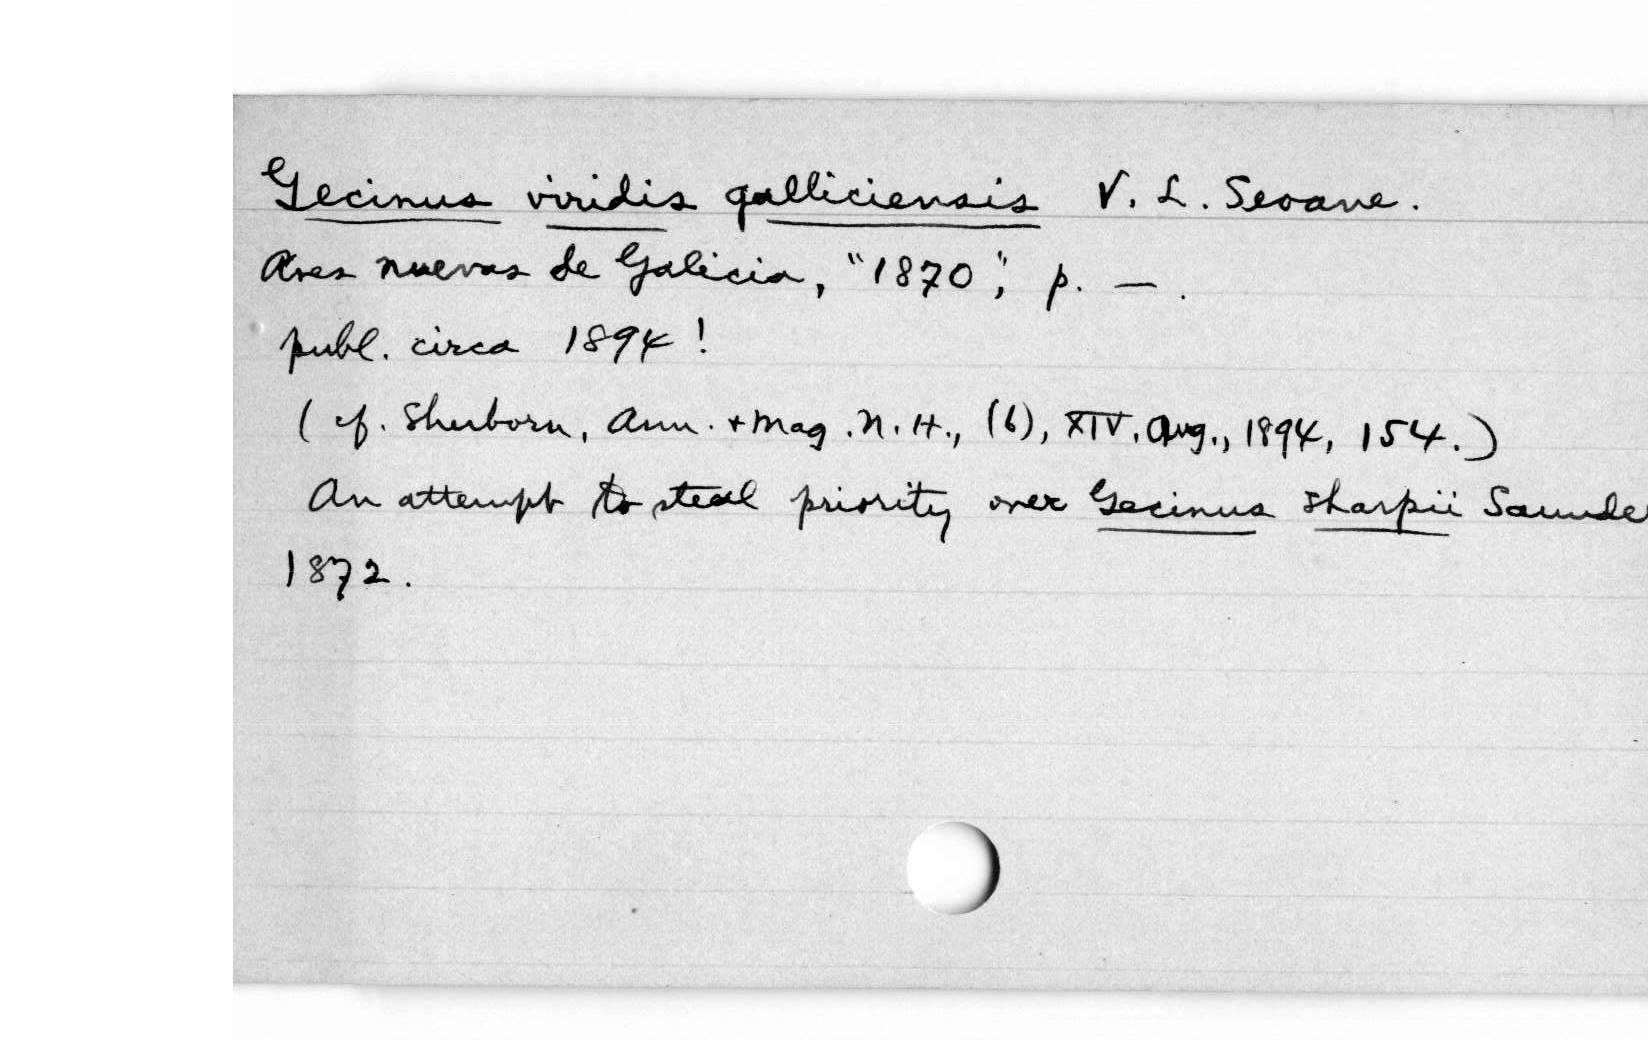 Gecinus viridis galliciensis V. L. Seoane.
Aves nuevas de Galicia, "1870", p. — .
publ. circa 1894!
(cf. Sherborn, Ann. + Mag. N. H., (6), XIV, Aug., 1894, 154.)
An attempt to steal priority over Gecinus sharpii Saunde
1872.